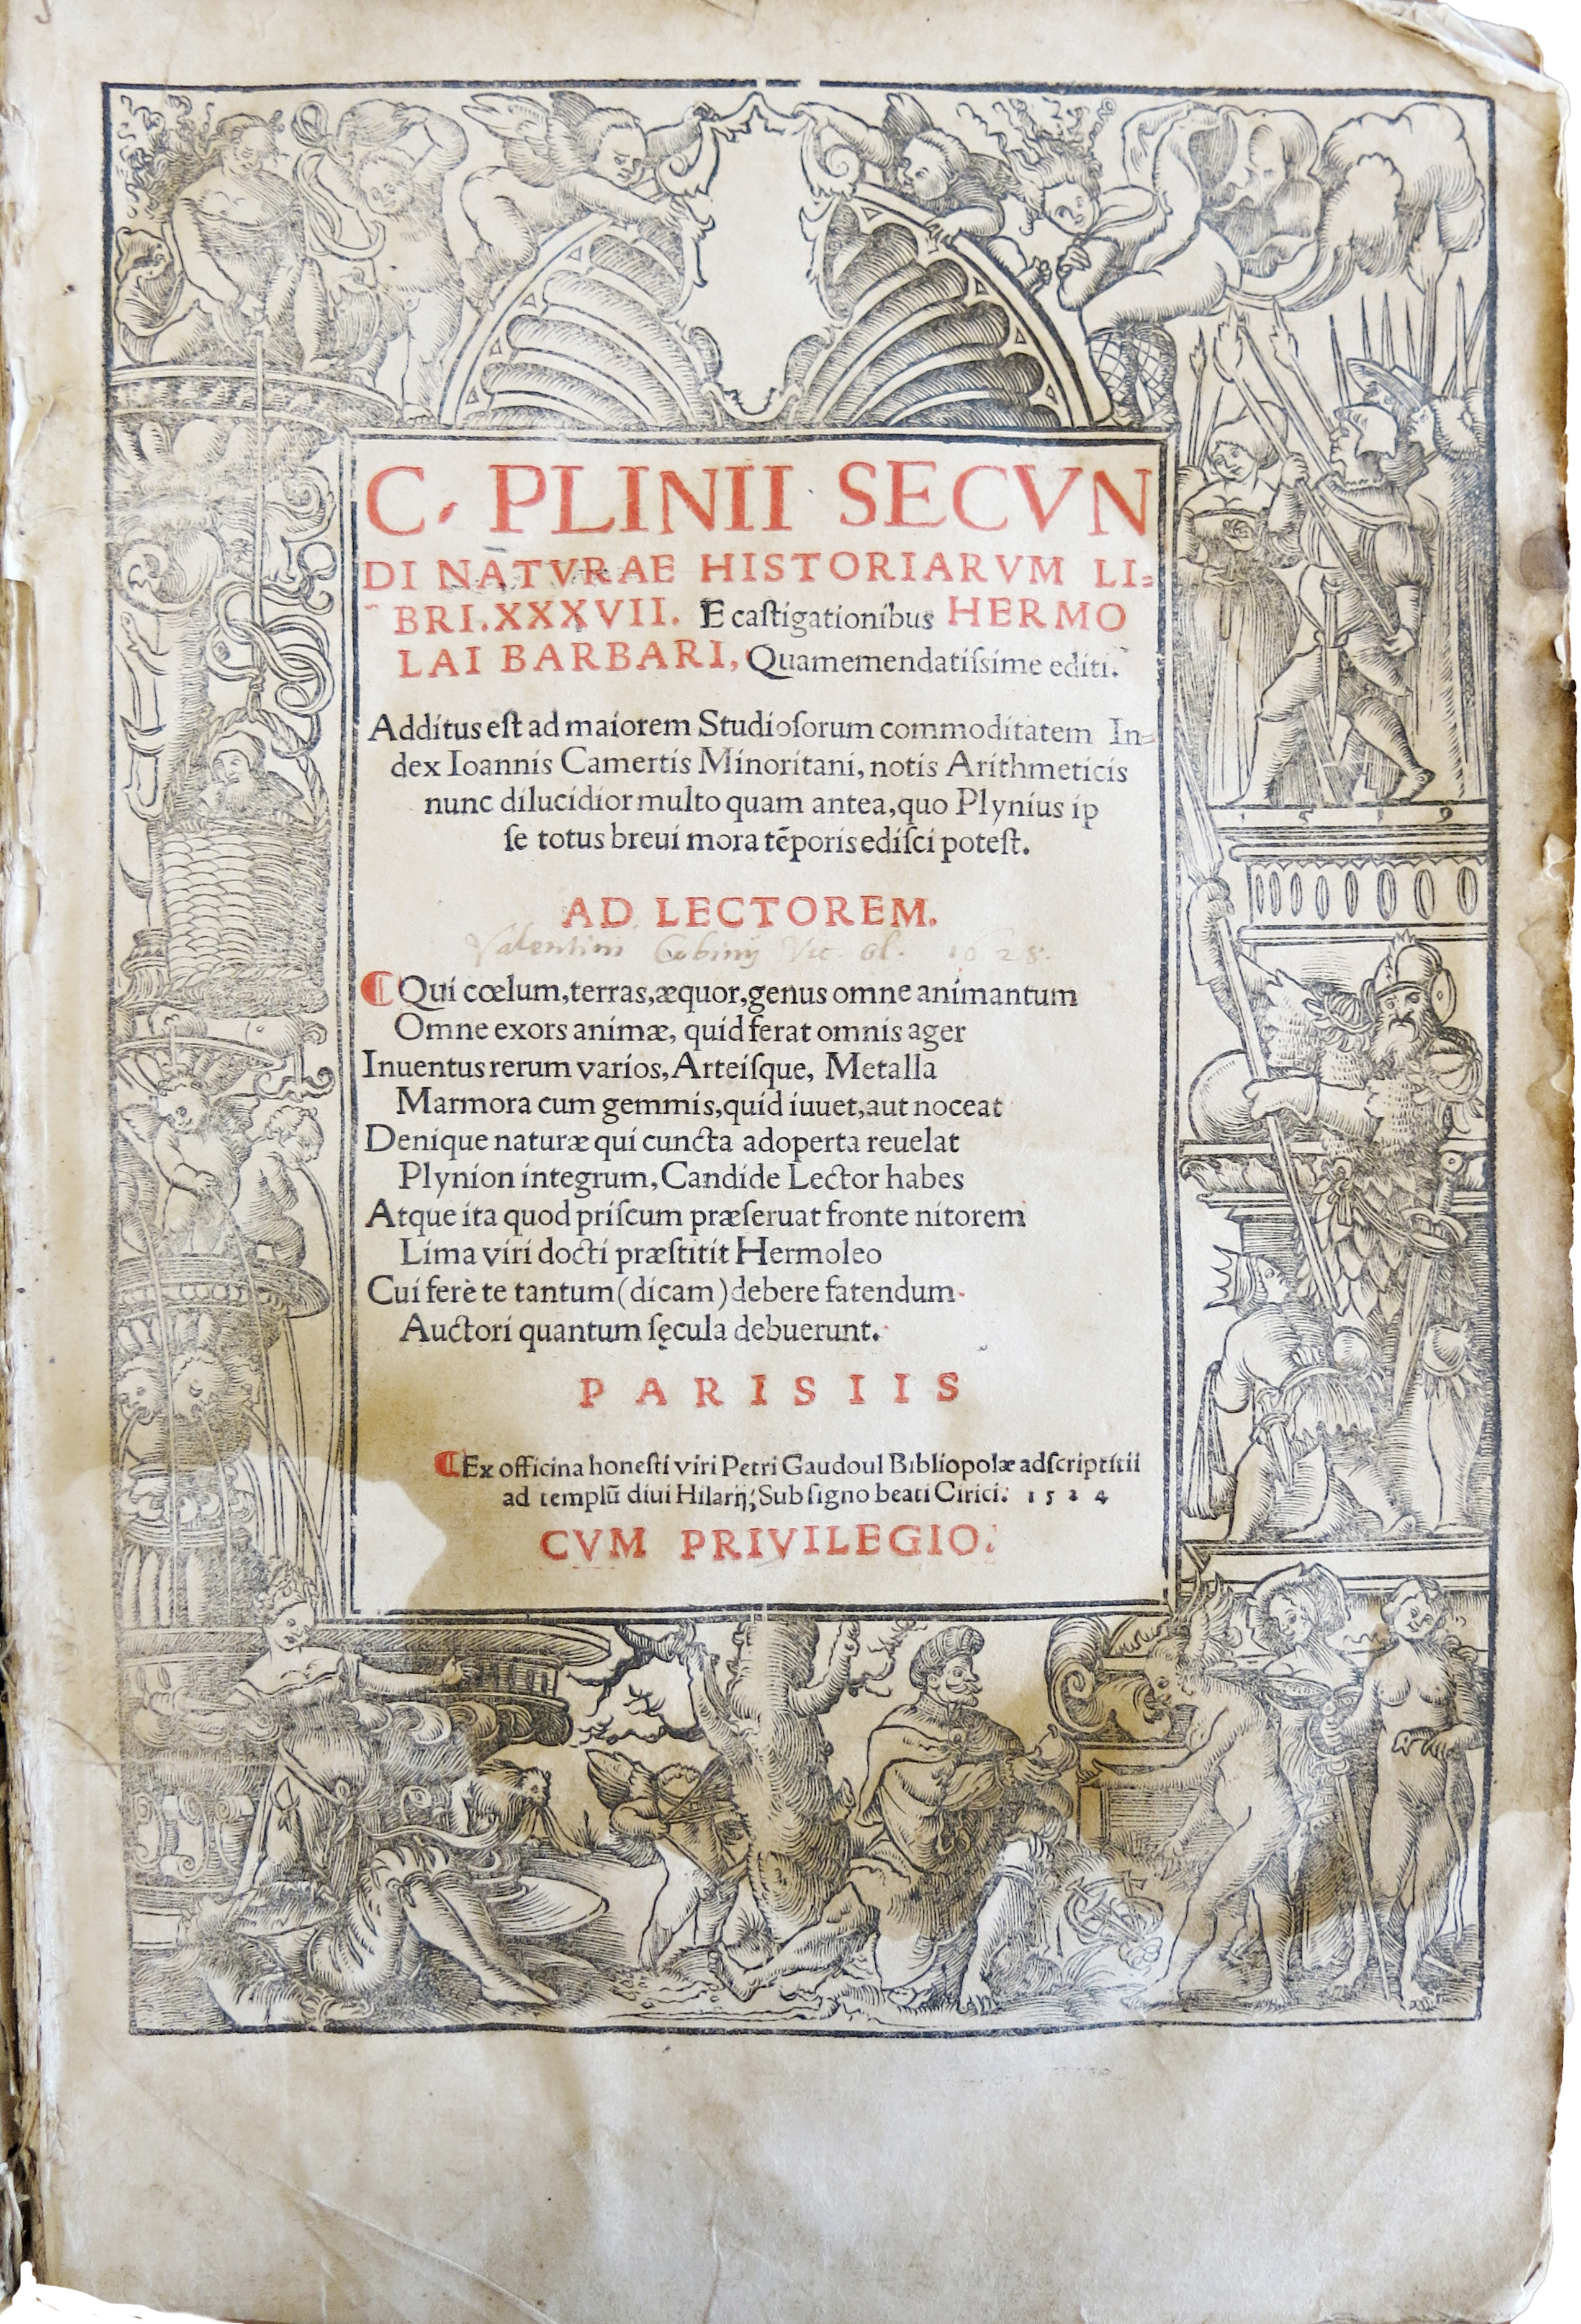 C. PLINII SECVN
DI NATVRAE HISTORIARVM LI=
BRI.XXXVII. E caſtigationibus HERMO
LAI BARBARI, Quamemendatiſsime editi.
Additus eſt ad maiorem Studioſorum commoditatem In=
dex Ioannis Camertis Minoritani, notis Arithmeticis
nunc dilucidior multo quam antea, quo Plynius ip
ſe totus breui mora tēporis ediſci poteſt.
AD LECTOREM.
Valentini 1628.
⁋ Qui cœlum, terras, æquor, genus omne animantum
Omne exors animæ, quid ferat omnis ager
Inuentus rerum varios, Arteiſque, Metalla
Marmora cum gemmis, quid iuuet, aut noceat
Denique naturæ qui cuncta adoperta reuelat
Plynion integrum, Candide Lector habes
Atque ita quod priſcum præſeruat fronte nitorem
Lima viri docti præſtitit Hermoleo
Cui ferè te tantum (dicam) debere fatendum
Auctori quantum ſęcula debuerunt.
PARISIIS
⁋ Ex officina honeſti viri Petri Gaudoul Bibliopolæ adſcriptitii
ad templū diui Hilarij; Sub ſigno beati Cirici. 1524
CVM PRIVILEGIO.
1519